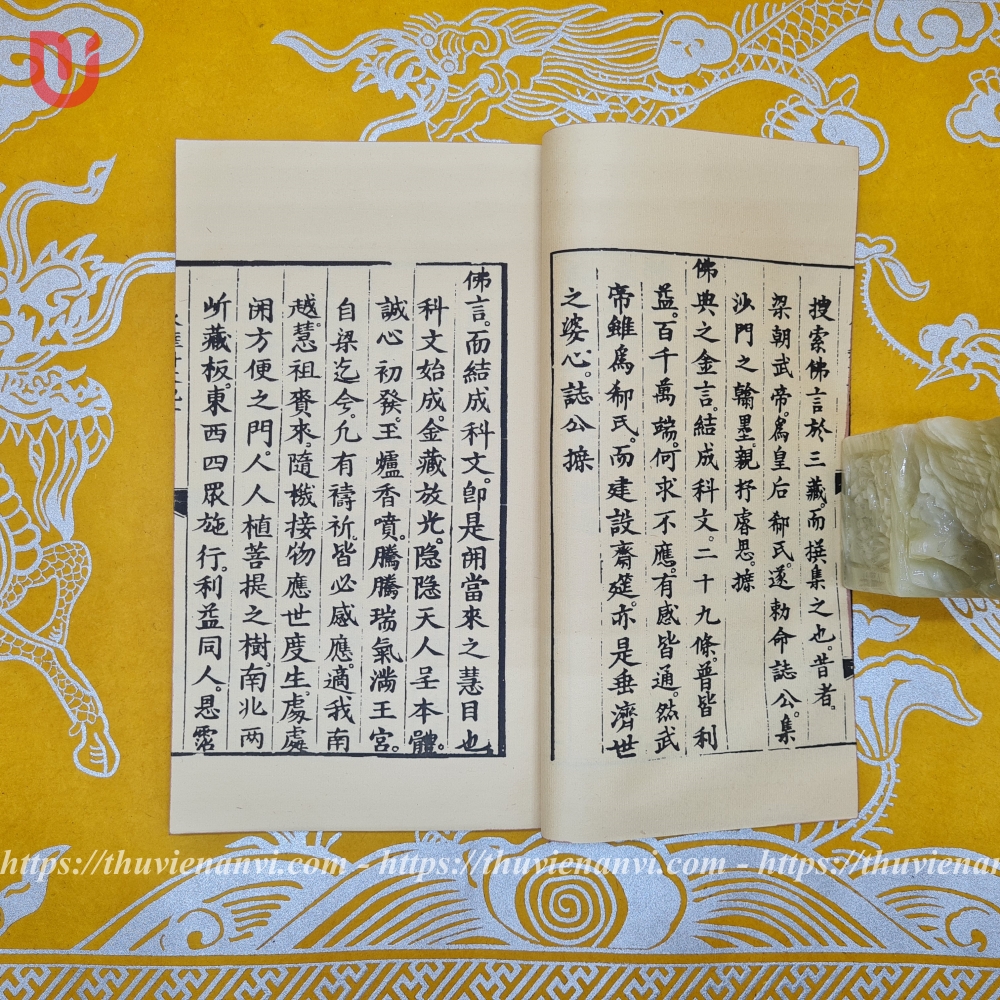 搜索佛言於三藏。而撰集之也。昔者。
梁朝武帝。為皇后郗氏。遂勅命誌公。集
沙門之翰墨。親抒睿思。㨿
佛典之金言。結成科文。二十九條。普皆利
益。百千萬端。何求不應。有感皆通。然武
帝雖為郗氏。而建設齋筵。亦是垂濟世
之婆心。誌公㨿
佛言。而結成科文。即是開當來之慧目也。
科文始成。金藏放光。隐隐天人呈本體。
誠心初發。玉爐香噴。騰騰瑞氣滿王宮。
自梁迄今。凢有禱祈。皆必感應。適我南
越。慧祖賷來。隨機接物。應世度生。處處
開方便之門。人人植菩提之樹。南北两
圻藏板。東西四眾施行。利益同人。恩霑
https://thuvienanvi.com - https://thuvienanvi.com - https://thuvienanvi